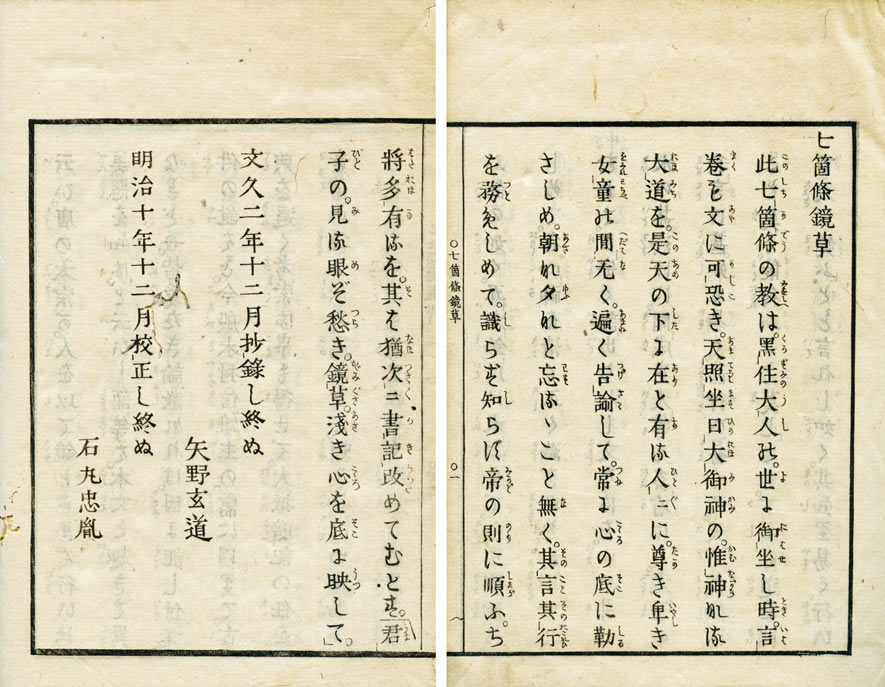 七箇條鏡草
此七箇條の教は。黒住大人の。世に御坐し時。言
卷も文に可恐き。天照坐日大御神の。惟神なる
大道を。是天の下に在と有る人々に。尊き卑き
女童の間无く。遍く告諭して。常に心の底に勒
さしめ。朝な夕なと忘るゝこと無く。其言其行
を務めしめて。識らず知らに帝の則に順ふ。ち
〇七箇條鏡草 〇一
將多有るを。其は猶次々書記改めてむとす。君
子の。見る眼ぞ愁き。鏡草。淺き心を底に映して。
文久二年十二月抄錄し終ぬ
矢野玄道
明治十年十二月校正し終ぬ
石丸忠胤